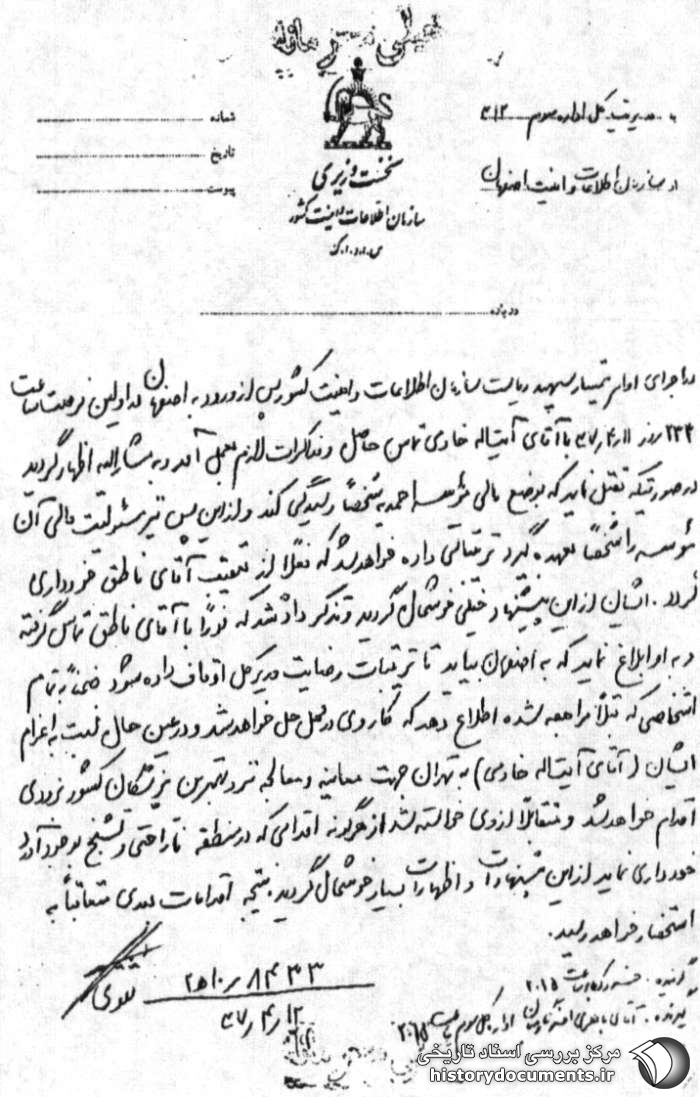 خیلی محرمانه
به مدیریت کل اداره سوم ۳۱۲
از سازمان اطلاعات و امنیت اصفهان
شماره
تاریخ
پیوست
نخست وزیری
سازمان اطلاعات و امنیت کشور
س.ا.و.ا.ک
درباره
در اجرای اوامر تیمسار سپهبد ریاست سازمان اطلاعات و امنیت کشور پس از ورود به اصفهان در اولین فرصت ساعت
روز ۳۷/۴/۱۱ با آقای آیت‌اله خادمی تماس حاصل و مذاکرات لازم بعمل آمد و به مشارالیه اظهار گردید
در صورتیکه تقبل نماید که بوضع مالی مؤسسه احمدیه شخصاً رسیدگی کند و از این پس نیز مسئولیت مالی آن
مؤسسه را شخصاً بعهده گیرد ترتیباتی داده خواهد شد که فعلاً از تعقیب آقای ناطق خودداری
گردد. ایشان از این پیشنهاد خیلی خوشحال گردید و تذکر داده شد که فوراً با آقای ناطق تماس گرفته
و به او ابلاغ نماید که به اصفهان بیاید تا ترتیبات رضایت مدیرکل اوقاف داده شود ضمناً به تمام
اشخاصی که قبلاً مراجعه شده اطلاع دهد که کار وی در محل حل خواهد شد و در عین حال نسبت به اعزام
ایشان (آقای آیت‌اله خادمی) به تهران جهت معاینه و معالجه نزد بهترین پزشکان کشور بزودی
اقدام خواهد شد و متقابلاً از وی خواسته شد از هرگونه اقدامی که در منطقه ناراحتی و تشنج بوجود آورد
خودداری نماید از این پیشنهادات و اظهارات بسیار خوشحال گردید. نتیجه اقدامات بعدی متعاقباً به
استحضار خواهد رسید.
تقوی
۸۴۳۳
۳۷/۴/۱۲
گیرنده
ساعت ۲۰۱۵
اداره کل سوم ساعت
مرکز بررسی اسناد تاریخی
historydocuments.ir